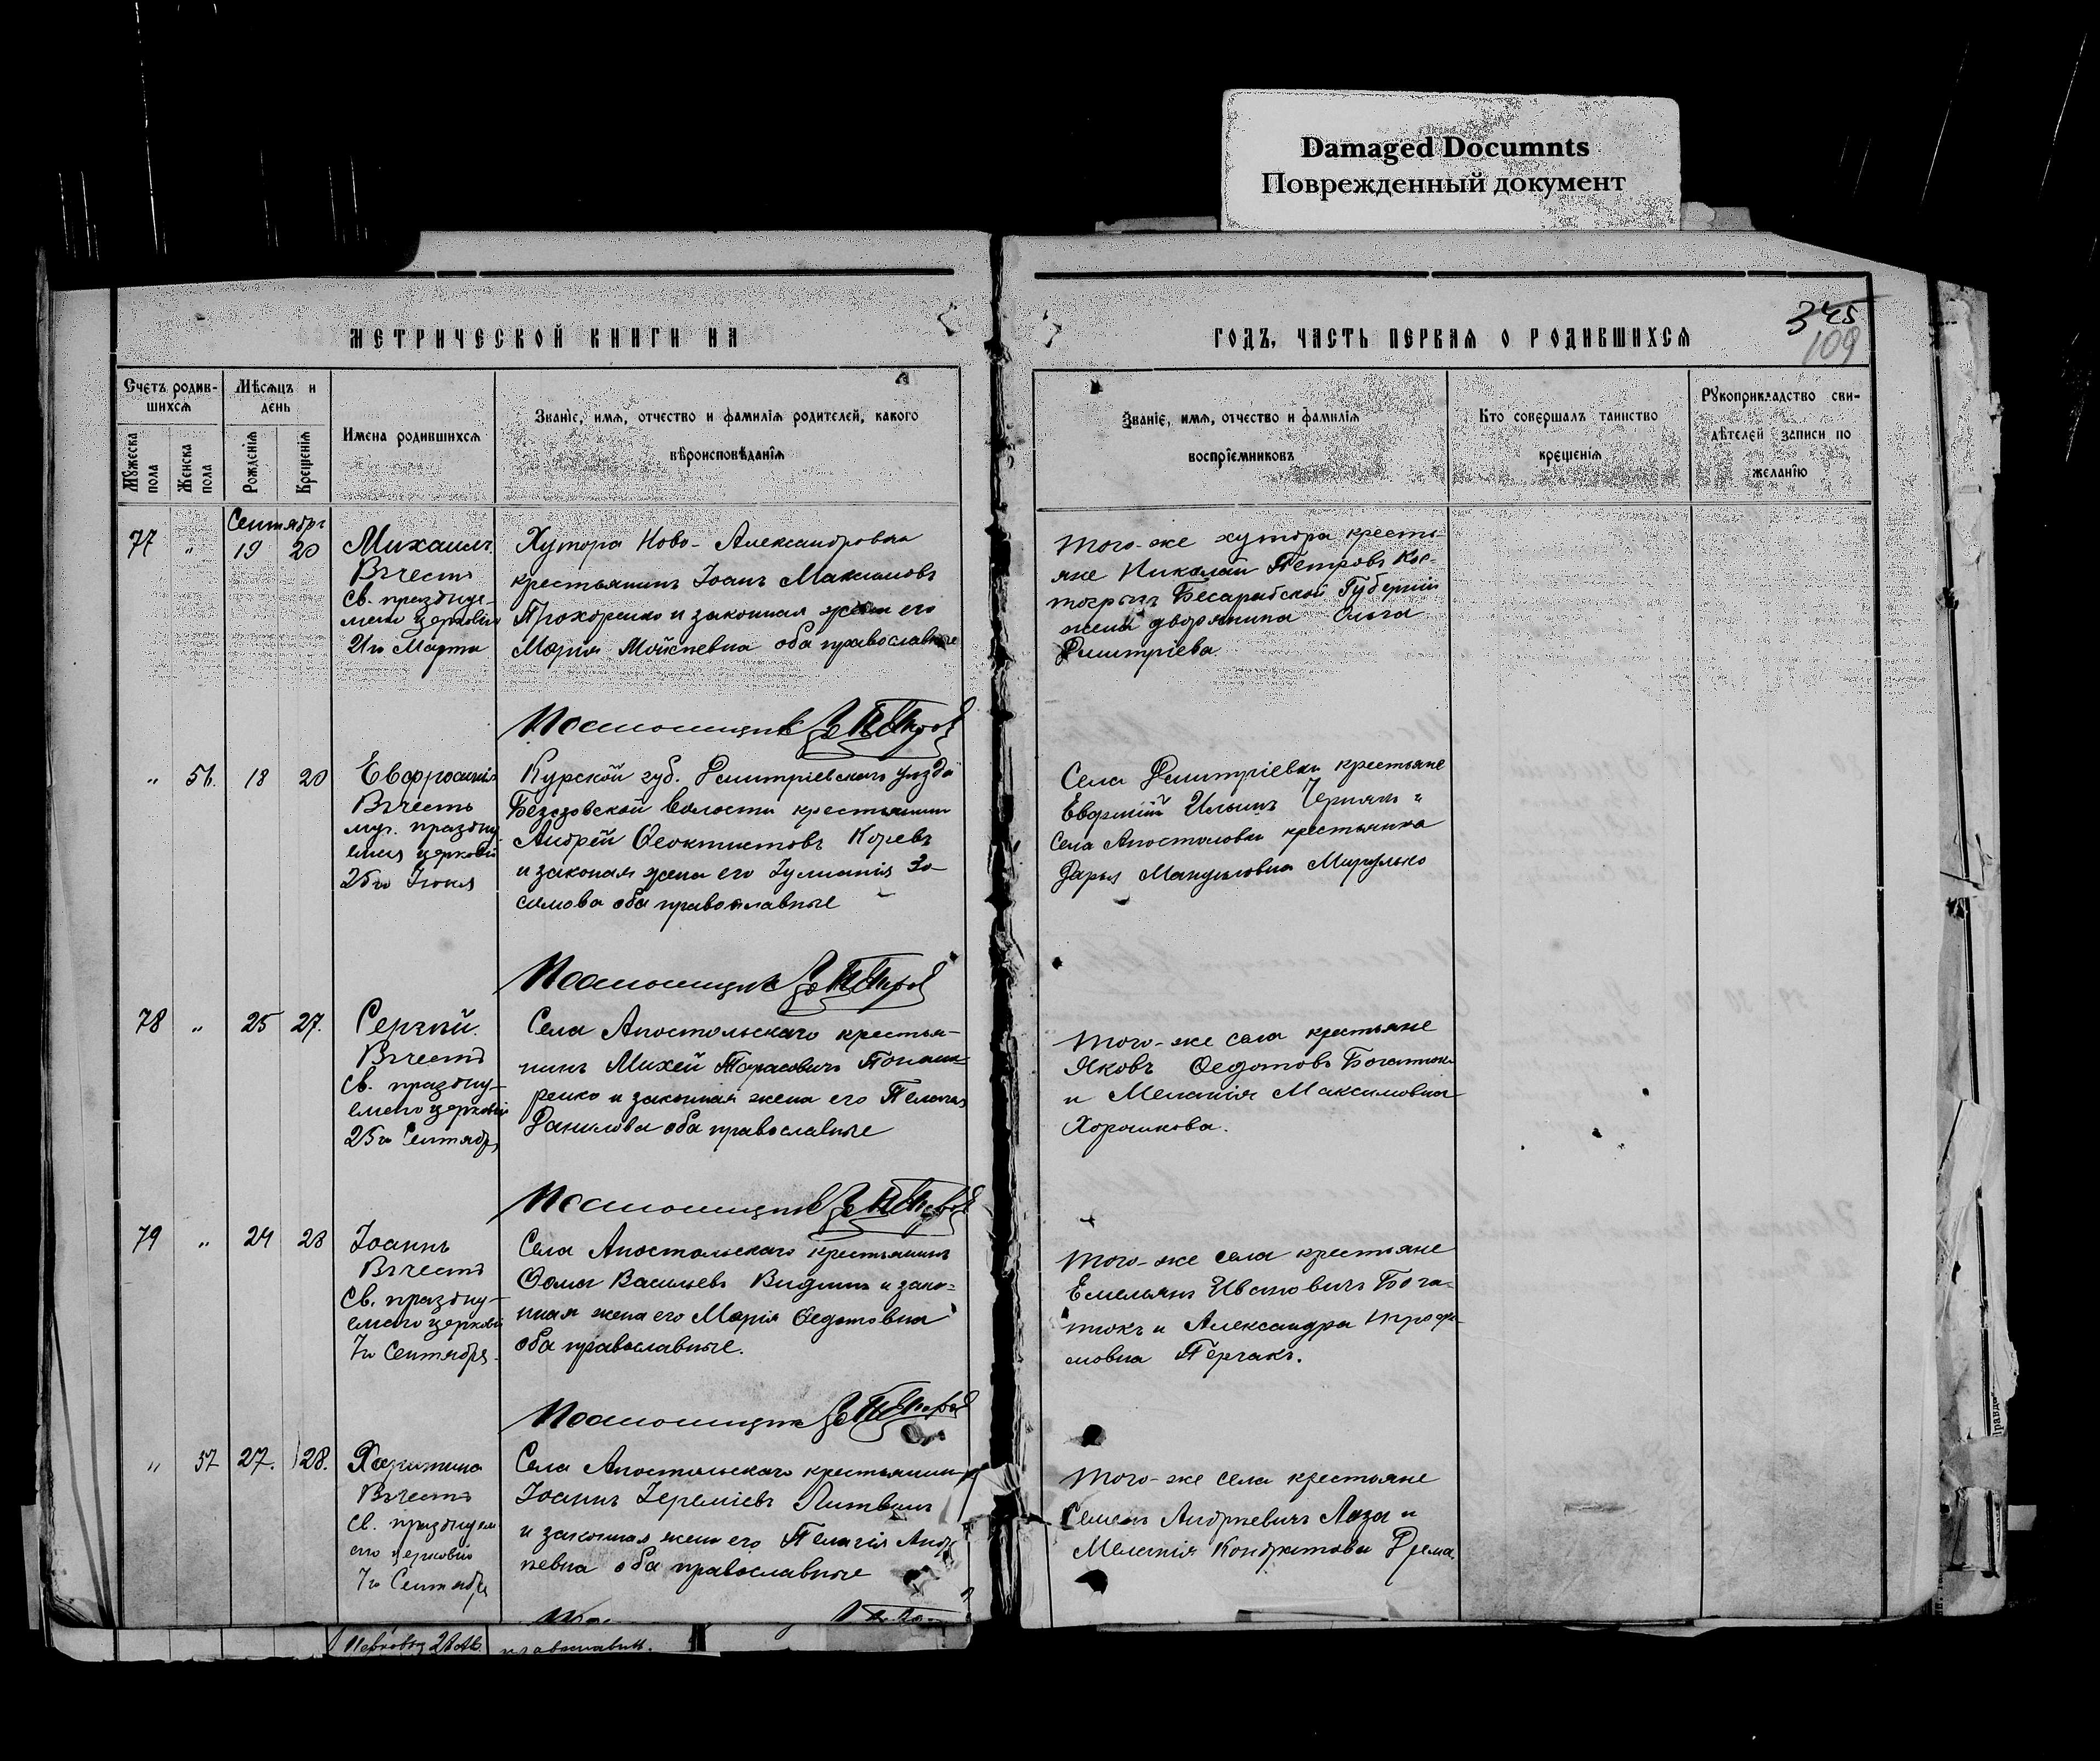 Damaged Documnts
Поврежденный документ
МЕТРИЧЕСКОЙ КНИГИ НА
ГОДЪ, ЧАСТЬ ПЕРВАЯ О РОДИВШИХСЯ
345
109
Счетъ родив-
шихся
Мужеска пола
Женска пола
Мѣсяцъ и
день
Рожденія
Крещенія
Имена родившихся
Званіе, имя, отчество и фамилія родителей, какого
вѣроисповѣданія
Званіе, имя, отчество и фамилія
воспріемниковъ
Кто совершалъ таинство
крещенія
Рукоприкладство сви-
дѣтелей записи по
желанію
Сентябрь
77 " 19 20
Михаилъ
Въ честь
св. праздну-
емаго церковію
21го Марта
Хутора Ново-Александровка
крестьянинъ Іоанъ Максимовъ
Прохоренко и законная жена его
Марія Мойсѣевна оба православные
Того-же хутора кресть-
яне Николай Петровъ
Бесарабской Губерніи
жена дворянина Ольга
Дмитріева
" 56. 18 20
Евфросинія
Въ честь
муч. праздну
емыя церковію
25го Іюня
Курской губ. Дмитріевскаго уѣзда
волости крестьянин
Андрей Феоктистовъ
и законая жена его Іуліанія Зо-
симова оба православные
Села Дмитріевки крестьяне
Евфимій Ильинъ Чернякъ и
Села Апостоловки крестьянка
Дарья Мануиловна
78 " 25 27.
Сергѣй.
Въ честь
св. праздну-
емаго церковію
25го Сентября
Села Апостольскаго крестья-
нинъ Михей Тарасовичъ Понома-
ренко и законная жена его Пелагія
Данилова оба православные
Того-же села крестьяне
Яковъ Федотовъ Богатюкъ
и Меланія Максимовна
Хорошкова.
79 " 24 28
Іоаннъ
Въ честь
Св. праздну-
емаго церковію
7го Сентября.
Села Апостольскаго крестьянинъ
Фома Васильевъ и зако-
нная жена его Марія Федотовна
оба православные.
Того-же села крестьяне
Емельянъ Ивановичъ Бога-
тюкъ и Александра Трофи-
мовна Перчакъ.
" 57 27. 28.
Харитина
Въ честь
св. праздну ем
его церковію
7го Сентября
Села Апостольскаго крестьянин
Іоаннъ Іереміевъ Литвинъ
и законная жена его Пелагія Андр
ѣевна оба православные
Того-же села крестьяне
Семенъ Андрѣевичъ Лаза и
Меланія Кондратова Дрема.